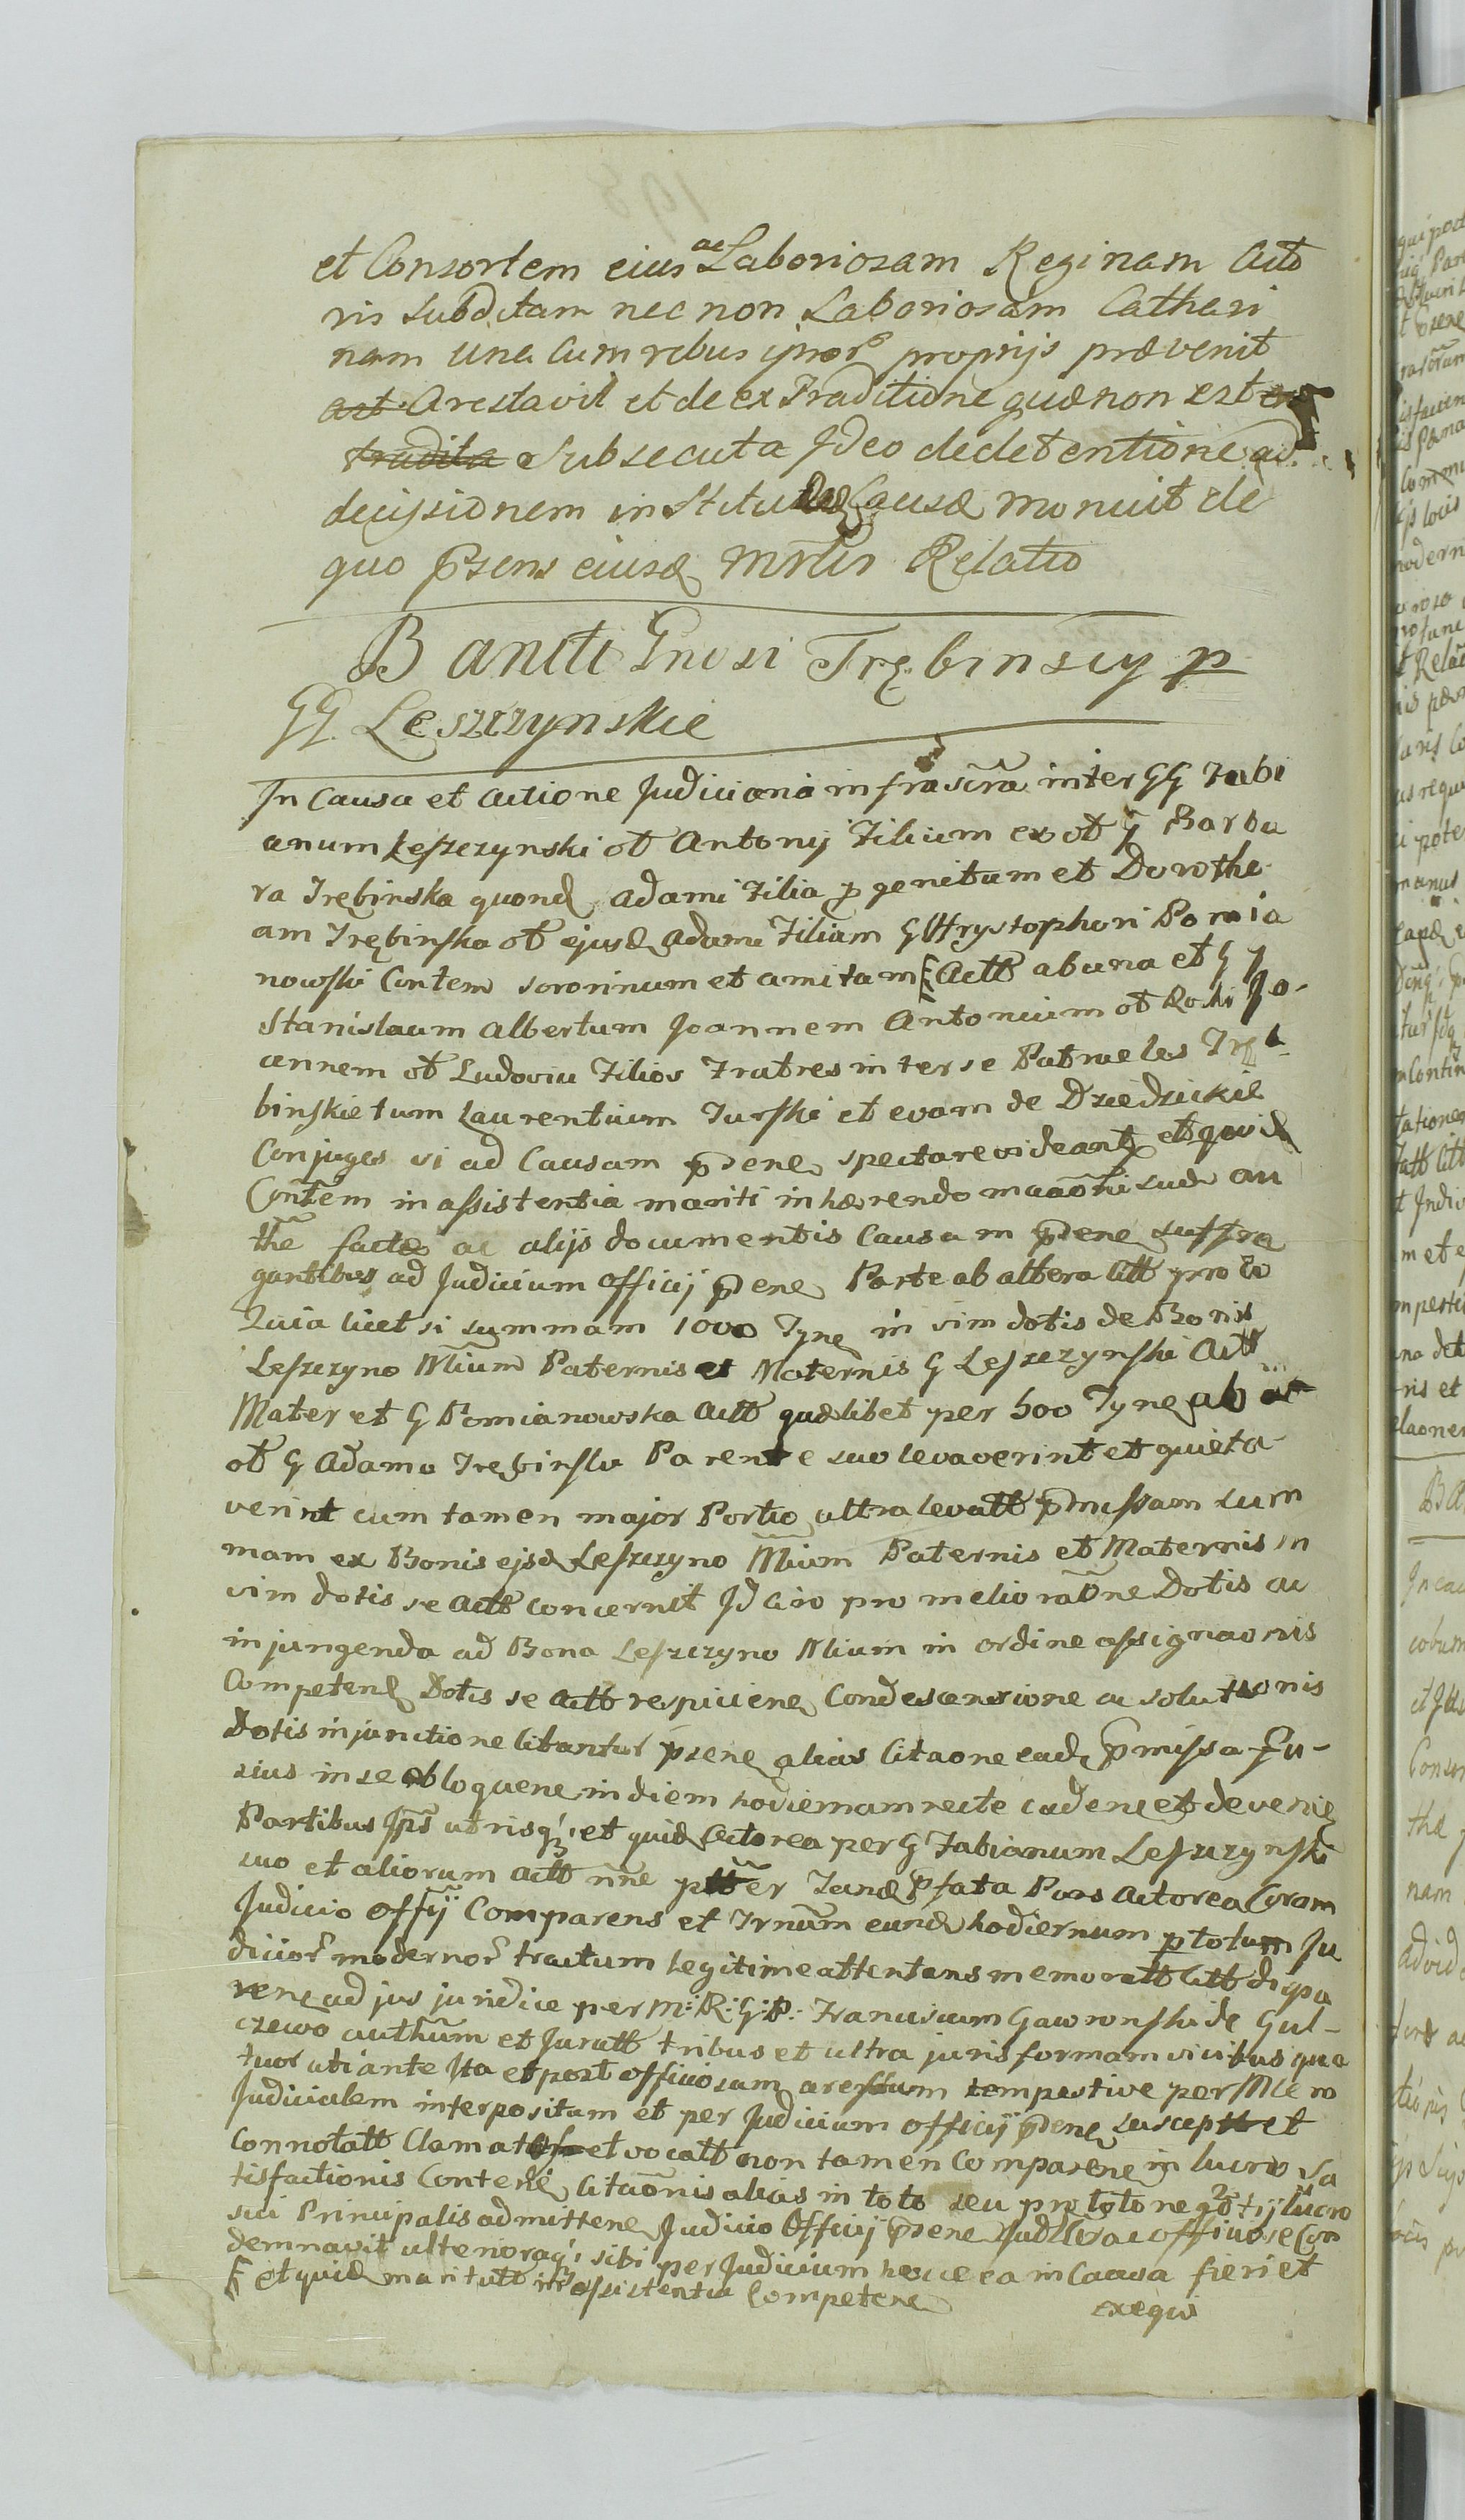 et Consortem eius ac Laboriosam Reginam Acto
ris Subditam nec non Laboriosam Cathari
nam una cum rebus ipsor proprijs prævenit
Arestavit et de ex Traditione quæ non est
tradita Subsecuta Ideo de detentione ad
decissionem institutæ Causæ monuit de
quo Psens eiusd Mrlis Relatio
Baniti Gnosi Trębinscy p
GG Leszczynskie
In Causa et actione Judiciaria infrascra inter GG Fabi
anum Leszczynski olt Antonij Filium ex olt G Barba
ra Trębinska quond Adami Filia p genitum et Dorothe
am Trębinska olt ejusd Adami Filiam G Chrystophori Pomia
nowski Contem sororinum et amitam Actt ab una et G G
Stanislaum Albertum Joannem Antonium olt Rochi Jo-
annem olt Ludovici Filios Fratres inter se Patrueles Trę
binskie tum Laurentium Turski et evam de Dziedzickie
Conjuges si ad Causam psene spectare videantz et quid
Contem in assistentia mariti inhærendo maaoni suæ au
the factæ ac alijs documentis Causam psene suffra
gantibus ad Judicium Officij psene Parte ab altera Citt pro eo
Quia licet si summam 1000 Tyne in vim dotis de Bonis
Leszczyno Mlium Paternis et Maternis G Leszczynski Actt
Mater et G Pomianowska Actt quælibet per 500 Tyne ab
olt G Adamo Trębinski Parente suo levaverint et quieta
verint cum tamen major Portio ultra levatt pmissam sum
mam ex Bonis ejsd Leszczyno Mlium Paternis et Maternis in
vim dotis se Actt concernit Id circo pro melioraone Dotis ac
injungenda ad Bona Leszczyno Mlium in ordine assignaonis
Competene Dotis se Actt respiciene Condescensione ac solutionis
Dotis injunctione citantur psene alias Citaone ead pmissa Fu-
sius in se obloquene in diem hodiernam recte cadene et devenie
Partibus Ips utrisq et quid Actorea per G Fabianum Leszczynski
suo et aliorum Actt nne ptter Tand pfata Pars Actorea Coram
Judicio Offij Comparens et Trnum eund hodiernum p totum Ju
dicior modernor tractum legitime attentans memoratt Citt dispa
rene ad jus juridice per M: R: G: P: Franciscum Gawronski de Gul-
czewo authum et Juratt tribus et ultra juris formam vicibus qua
tuor uti ante Ita et post officiosam arestum tempestive per Mlero
Judicialem interpositam et per Judicium officij psene suscept et
Connotatt Clamat et vocatt non tamen Comparene in lucro sa
tisfactionis Contene Citaonis alias in toto seu pro toto negotij lucro
sui Principalis admittene Judicio Officij psene officiose Con
demnavit ulterioraq sibi per Judicium hocce ea in Causa fieri et
et quid maritatt in assistentia Competene
exequi